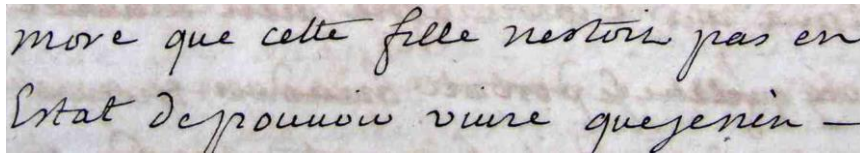 more que cette fille nestoit pas en
Estat depouuoir viure quejenen —